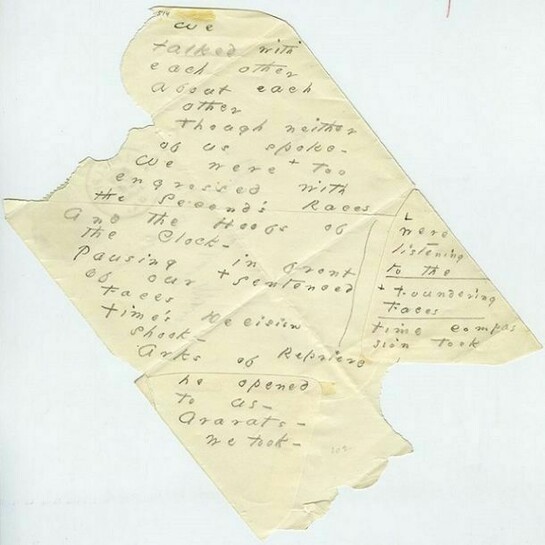 We
talked with
each other
about each
other
though neither
of us spoke –
We were + too
engrossed with
the Second's Races
And the Hoofs of
the Clock –
Pausing in front
of our + sentenced
Faces
Time's Decision
shook –
Arks of Reprieve
he opened
to us –
Ararats –
we took –
were
listening
to the
+ foundering
Faces
time compas
sion took